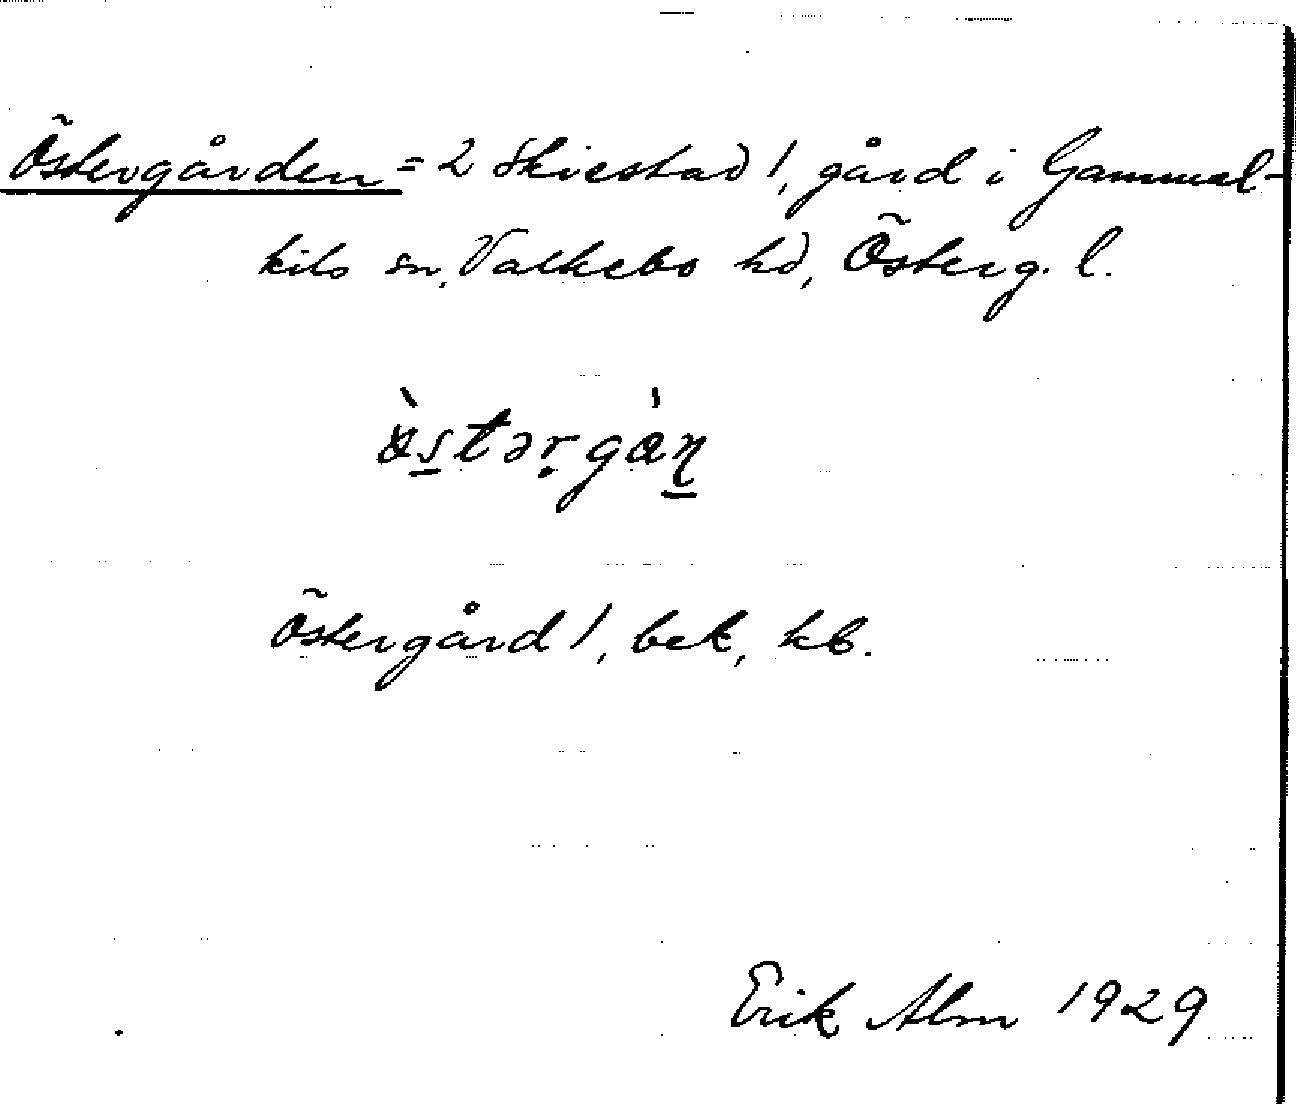 Östergården = 2 Skiestad 1, gård i Gammal-
kils sn, Valkebo hd, Österg. l.
östərgàn
Östergård 1, bek, kb.
Erik Alm 1929